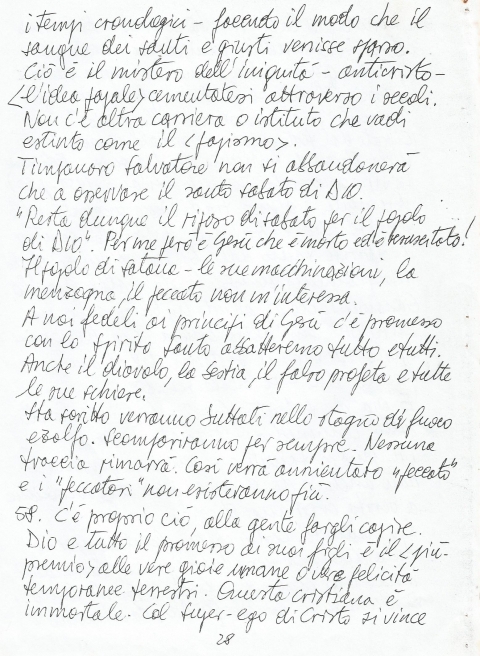 i tempi cronologici - facendo il modo che il
sangue dei santi e giusti venisse sparso.
Ciò è il mistero dell'iniquità - anticristo -
<l'idea papale> cementatesi attraverso i secoli.
Non c'è altra carriera o istituto che vadi
estinto come il <papismo>.
Timpanaro Salvatore non si abbandonerà
che a osservare il santo sabato di DIO.
"Resta dunque il riposo di sabato per il popolo
di DIO". Per me però è Gesù che è morto ed è resuscitato!
Il popolo di satana - le sue macchinazioni, la
menzogna, il peccato non m'interessa.
A noi fedeli ai principi di Gesù c'è promesso
con lo spirito santo abbatteremo tutto e tutti.
Anche il diavolo, la bestia, il falso profeta e tutte
le sue schiere.
Sta scritto verranno buttati nello stagno di fuoco
e zolfo. Scompariranno per sempre. Nessuna
traccia rimarrà. Così verrà annientato "peccato"
e i "peccatori" non esisteranno più.
58. C'è proprio ciò, alla gente fargli capire.
Dio e tutto il promesso ai suoi figli è il <più-
premio> alle vere gioie umane felicità
temporanee terrestri. Questa cristiana è
immortale. Col super-ego di Cristo si vince
28